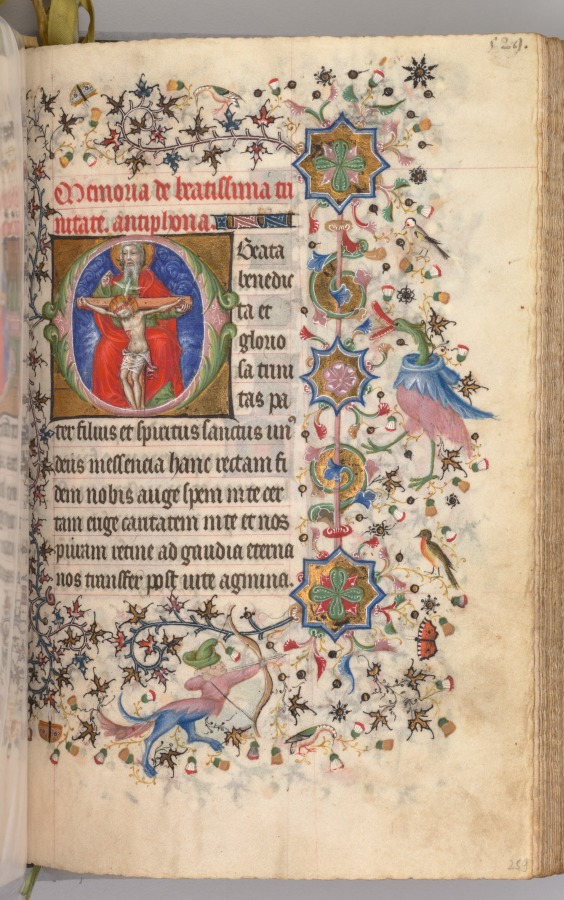 529.
Memoria de beatissima tri
nitate. antiphona.
O Beata
benedic
ta et
glorio
sa trini
tas pa
ter filius et spiritus sanctus un'
deus in essencia hanc rectam fi
dem nobis auge spem in te cer
tam auge caritatem in te et nos
puram retine ad gaudia eterna
nos transfer post vite agmina.
258